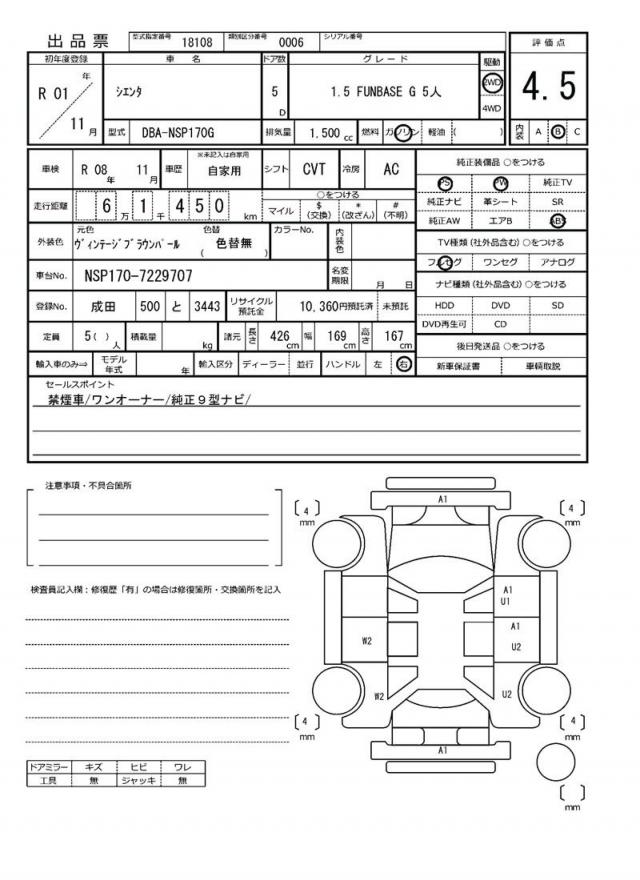 出品票 型式指定番号 18108 類別区分番号 0006 シリアル番号
評価点
4.5
内装 A B C
初年度登録 車名 ドア数 グレード 駆動
R 01 年 11 月
シエンタ 5 D 1.5 FUNBASE G 5人 2WD
4WD
型式 DBA-NSP170G 排気量 1.500 cc 燃料 ガソリン 軽油 ( )
車検 R 08 年 11 月 車歴 ※未記入は自家用 自家用 シフト CVT 冷房 AC
走行距離 6 万 1 千 4 5 0 km
○をつける
マイル $ (交換) * (改ざん) # (不明)
外装色 元色 ヴィンテージブラウンパール 色替 ( 色替無 ) カラーNo. 内装色
車台No. NSP170-7229707 名変期限 月 日
登録No. 成田 500 と 3443 リサイクル預託金 10,360円預託済 未預託
定員 5( ) 人 積載量 kg 諸元 長さ 426 cm 幅 169 cm 高さ 167 cm
輸入車のみ⇨ モデル年式 年 輸入区分 ディーラー 並行 ハンドル 左 右
純正装備品 ○をつける
PS PW 純正TV
純正ナビ 革シート SR
純正AW エアB ABS
TV種類(社外品含む) ○をつける
フルセグ ワンセグ アナログ
ナビ種類(社外品含む) ○をつける
HDD DVD SD
DVD再生可 CD
後日発送品 ○をつける
新車保証書 車輌取説
セールスポイント
禁煙車/ワンオーナー/純正9型ナビ/
注意事項・不具合箇所
検査員記入欄：修復歴「有」の場合は修復箇所・交換箇所を記入
ドアミラー キズ ヒビ ワレ
工具 無 ジャッキ 無
A1
[ 4 ] mm
[ 4 ] mm
A1
U1
A1
U2
W2
W2
U2
[ 4 ] mm
[ 4 ] mm
A1
[ ] mm